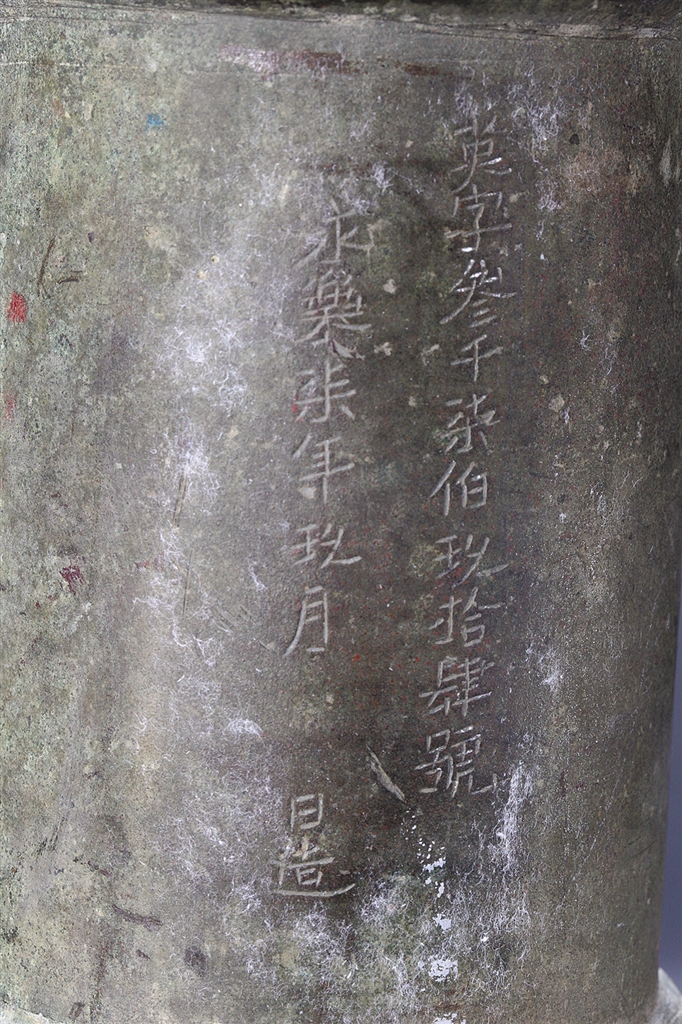 英字叁千柒伯玖拾肆號
永樂柒年玖月 日造